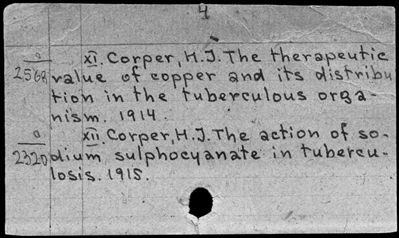 4
a XI. Corper, H.J. The therapeutic
2568 value of copper and its distribu
tion in the tuberculous orga-
nism. 1914.
a XII. Corper, H.J. The action of so-
2320 dium sulphocyanate in tubercu-
losis. 1915.